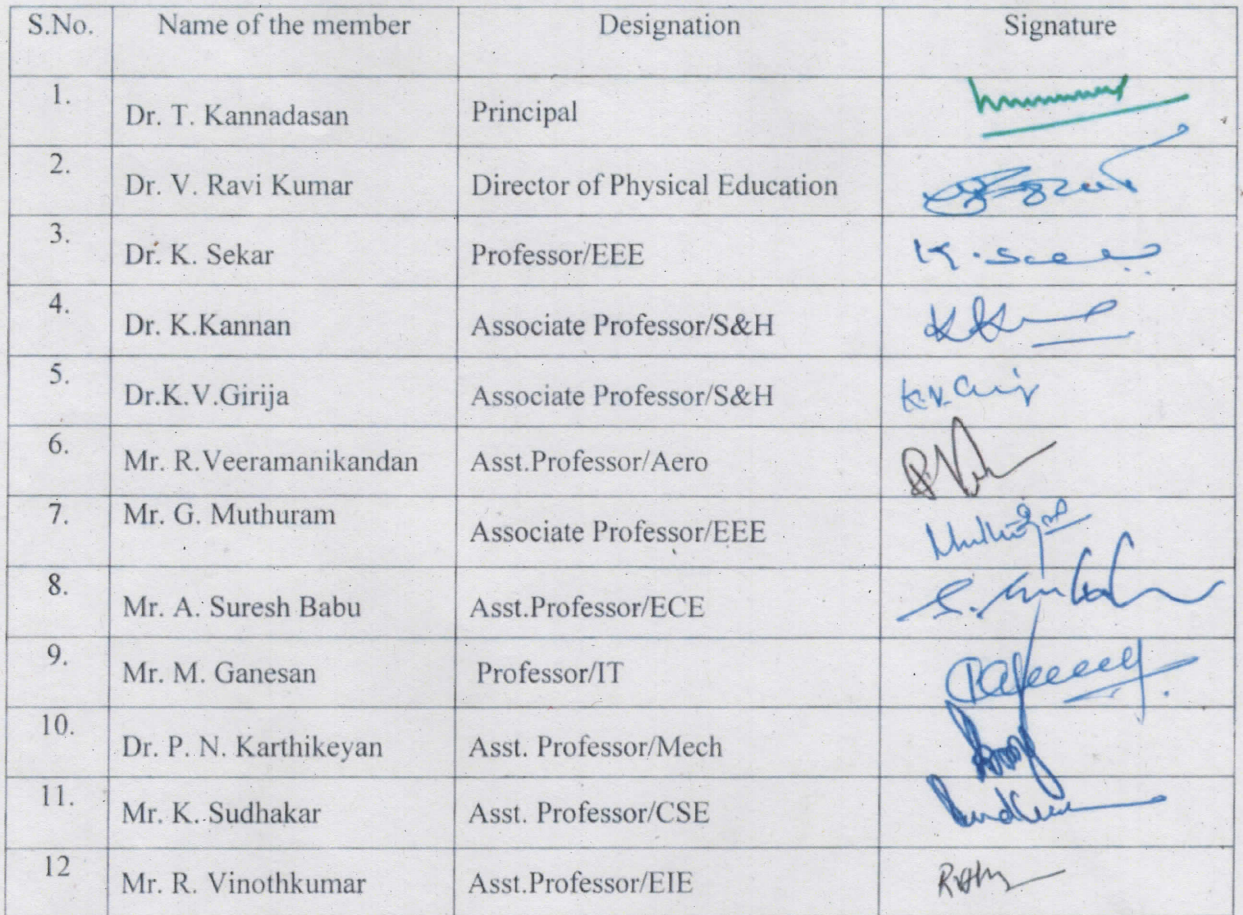 S.No. Name of the member Designation Signature
1. Dr. T. Kannadasan Principal
2. Dr. V. Ravi Kumar Director of Physical Education
3. Dr. K. Sekar Professor/EEE
4. Dr. K.Kannan Associate Professor/S&H
5. Dr.K.V.Girija Associate Professor/S&H
6. Mr. R.Veeramanikandan Asst.Professor/Aero
7. Mr. G. Muthuram Associate Professor/EEE
8. Mr. A. Suresh Babu Asst.Professor/ECE
9. Mr. M. Ganesan Professor/IT
10. Dr. P. N. Karthikeyan Asst. Professor/Mech
11. Mr. K. Sudhakar Asst. Professor/CSE
12 Mr. R. Vinothkumar Asst.Professor/EIE